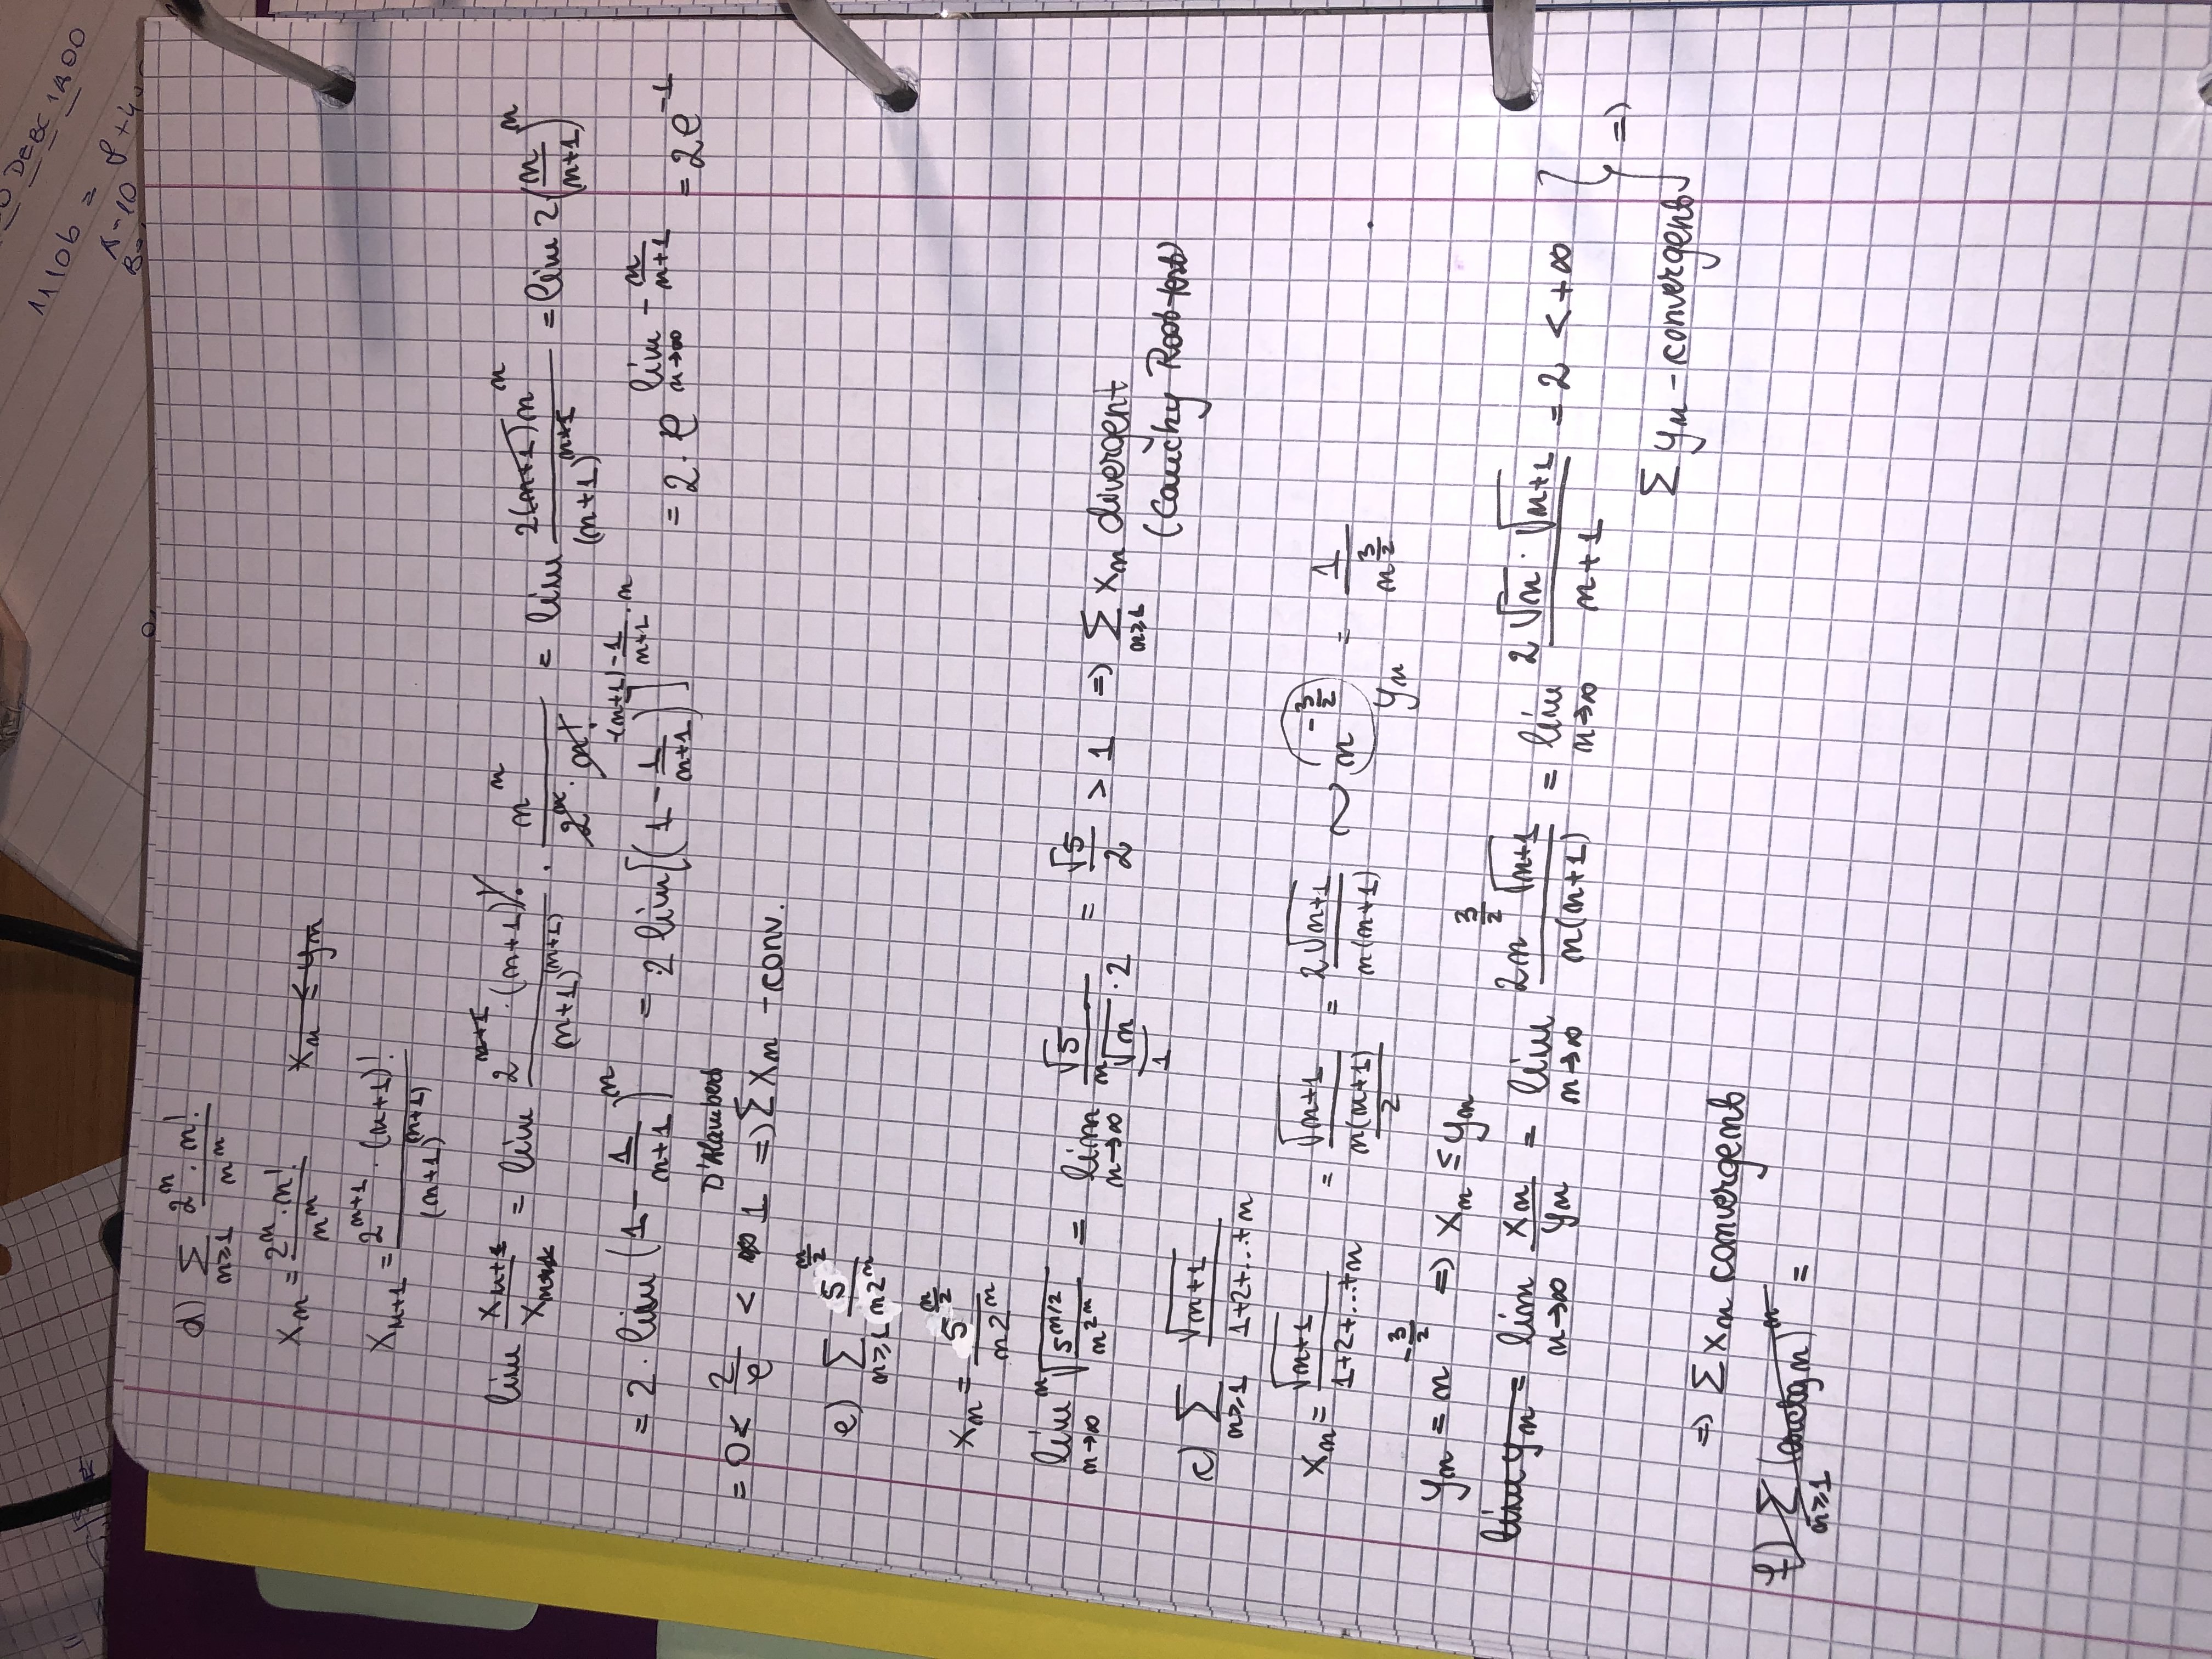 DEBC 1A00
1110b = 8+4+
A-10
d) ∑_{n≥1} \frac{2^n · n!}{n^n}
x_n = \frac{2^n · n!}{n^n}   x_n ≤ y_n
x_{n+1} = \frac{2^{n+1} · (n+1)!}{(n+1)^{(n+1)}}
lim \frac{x_{n+1}}{x_n} = lim \frac{2^{n+1} · (n+1)!}{(n+1)^{(n+1)}} · \frac{n^n}{2^n · n!} = lim \frac{2(n+1)n^n}{(n+1)^{n+1}} = lim 2 (\frac{n}{n+1})^n
= 2 · lim (1 - \frac{1}{n+1})^n = 2 lim [(1 - \frac{1}{n+1})]^{-(n+1) · -\frac{1}{n+1} · n} = 2 · e^{lim_{n→∞} -\frac{n}{n+1}} = 2e^{-1}
D'Alambert
= 0 < \frac{2}{e} < 1 ⇒ ∑ x_n - conv.
e) ∑_{n≥1} \frac{5^{\frac{n}{2}}}{n2^n}
x_n = \frac{5^{\frac{n}{2}}}{n2^n}
lim_{n→∞} \sqrt[n]{\frac{5^{n/2}}{n2^n}} = lim_{n→∞} \frac{\sqrt{5}}{\sqrt[n]{n} · 2} = \frac{\sqrt{5}}{2} > 1 ⇒ ∑_{n≥1} x_n divergent
1
(Cauchy Root test)
c) ∑_{n≥1} \frac{\sqrt{n+1}}{1+2+...+n}
x_n = \frac{\sqrt{n+1}}{1+2+...+n} = \frac{\sqrt{n+1}}{\frac{n(n+1)}{2}} = \frac{2\sqrt{n+1}}{n(n+1)} ~ n^{-\frac{3}{2}} = \frac{1}{n^{\frac{3}{2}}}
y_n
y_n = n^{-\frac{3}{2}} ⇒ x_n ≤ y_n
lim y_n = lim_{n→∞} \frac{x_n}{y_n} = lim_{n→∞} \frac{2n^{\frac{3}{2}} \sqrt{n+1}}{n(n+1)} = lim_{n→∞} \frac{2\sqrt{n} · \sqrt{n+1}}{n+1} = 2 < +∞
∑ y_n - convergent } ⇒
⇒ ∑ x_n convergent
f) ∑_{n≥1} (arctg n)^n =